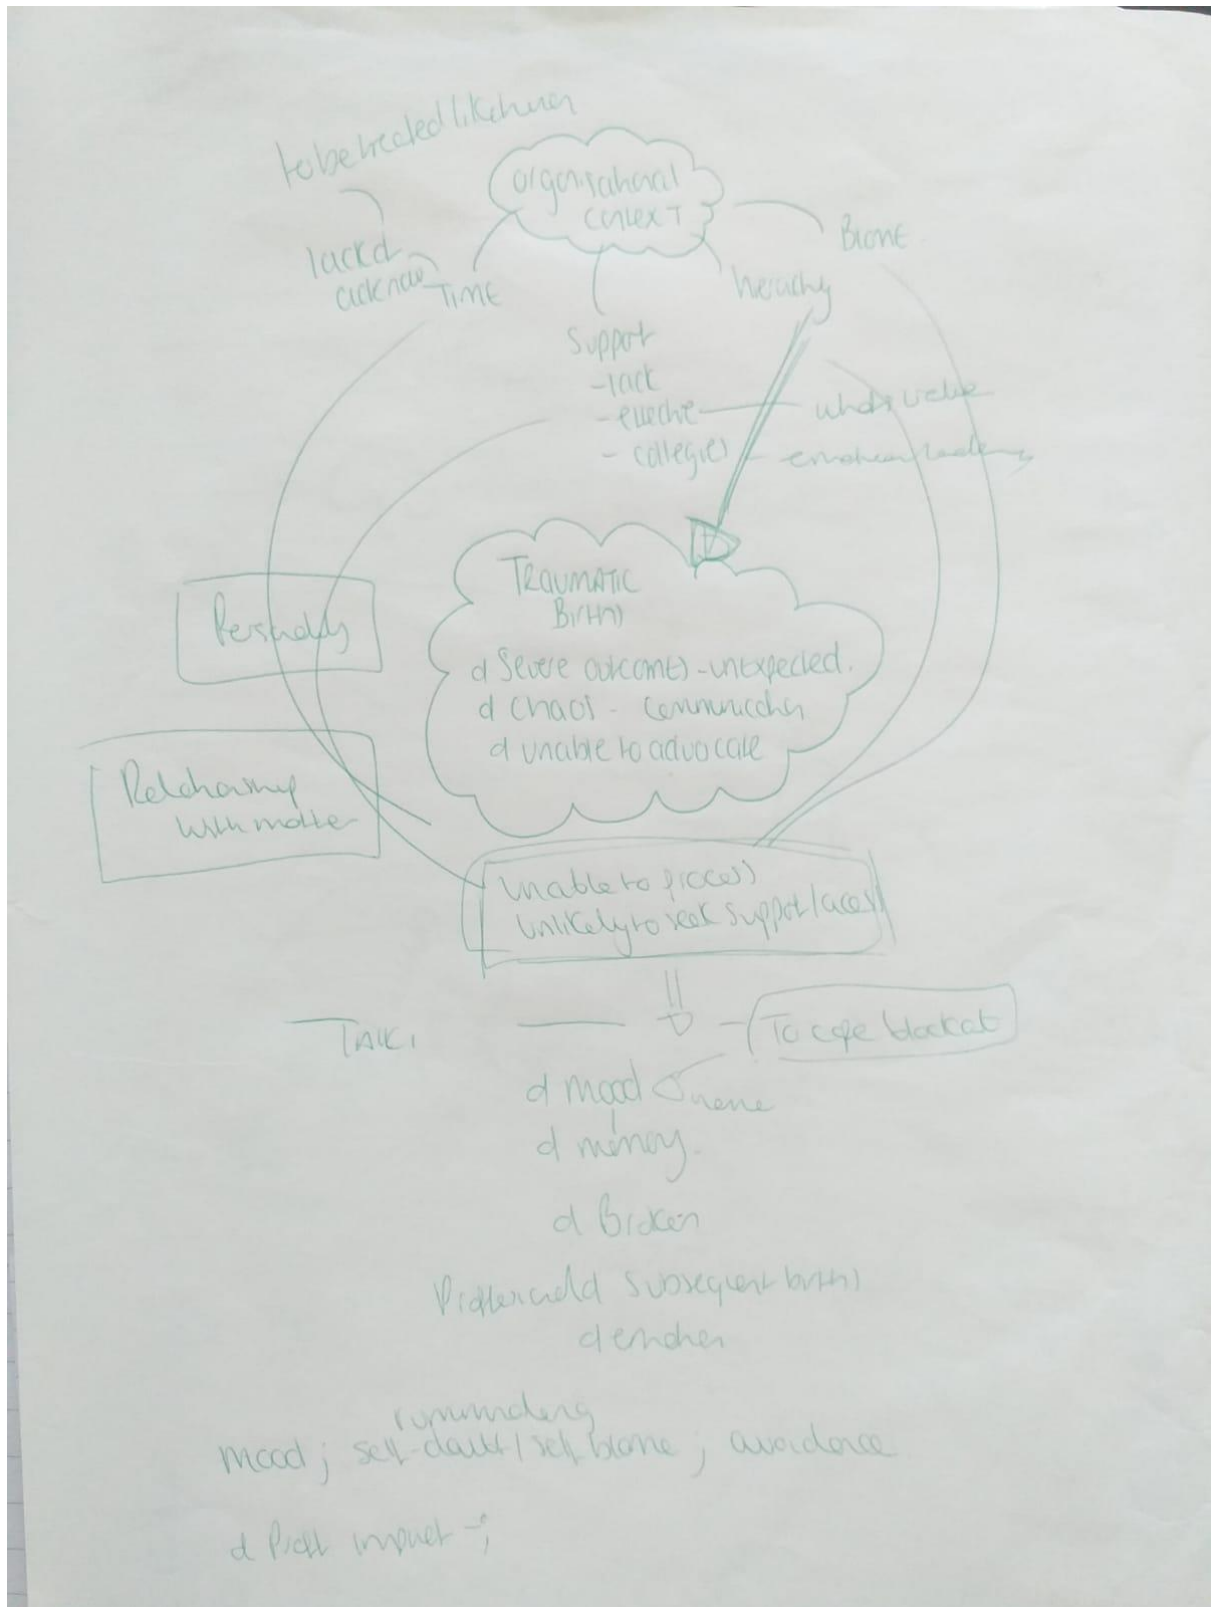 to be treated like human
organisational
context
Blame
lack of
acknow
TIME
hierarchy
Support
- lack
- effective
- collegies
TRAUMATIC
Birth)
Personality
d Severe outcomes - unexpected.
d Chaos - communication
d unable to advocate
Relationship
with mother
unable to process
unlikely to seek support / access
TALK,
To cope block out
d mood
d memory.
d Broken
subsequent births
d emotion
ruminating
mood; self-doubt / self blame; avoidance
d Proff impact -;